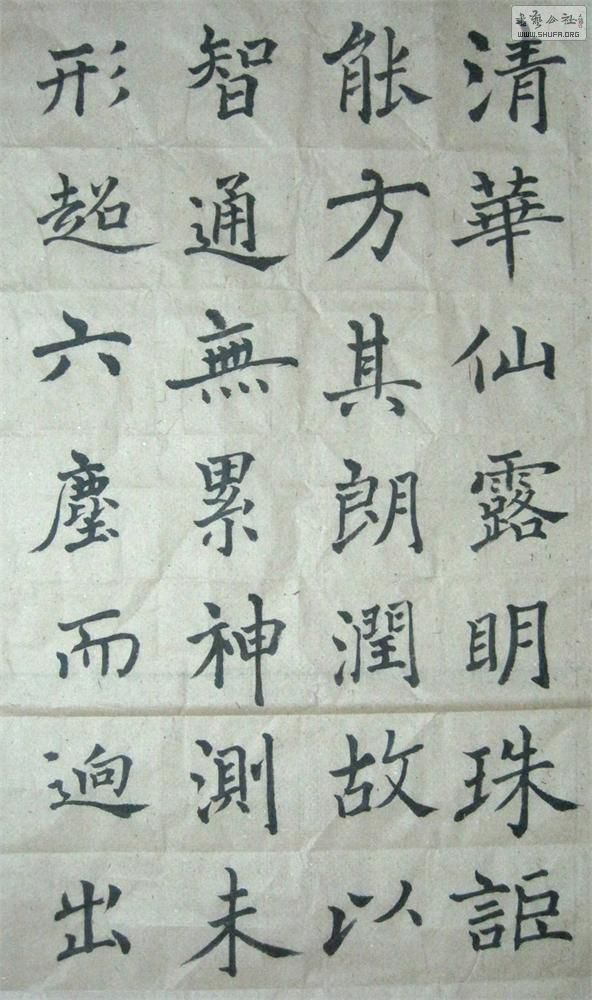 清華仙露明珠詎
能方其朗潤故以
智通無累神測未
形超六塵而逈出
书艺公社
WWW.SHUFA.ORG